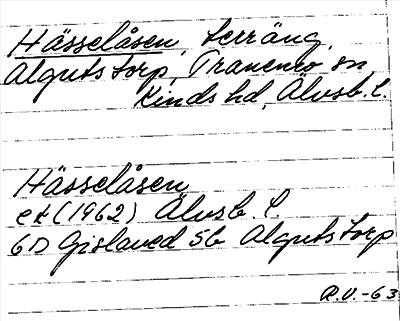 Hässelåsen, terräng,
Algutstorp, Tranemo sn
Kinds hd, Älvsb. l.
Hässelåsen
ek (1962) Älvsb. l.
6D Gislaved 5b Algutstorp
R.V.-63